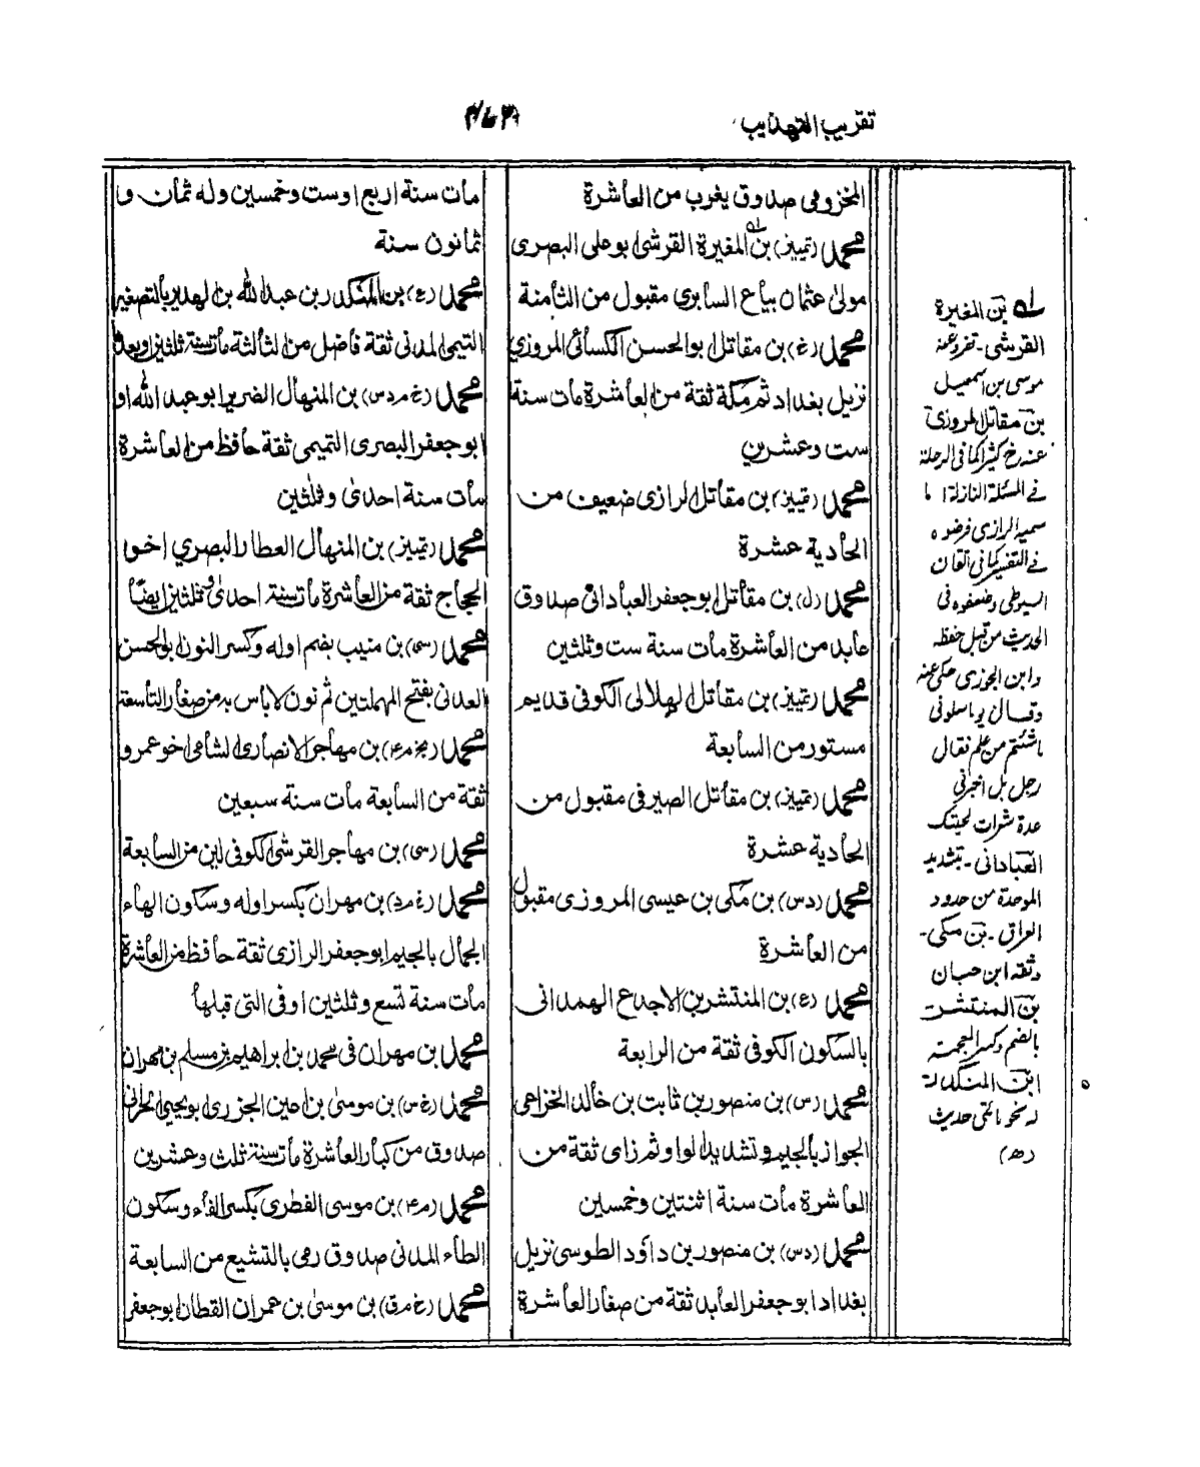 تقريب التهذيب
المخزومى صدوق يغرب من العاشرة
محمد (تمييز) بن المغيرة القرشى ابو على البصرى
مولى عثمان بياع السابرى مقبول من الثامنة
محمد (خ) بن مقاتل ابو الحسن الكسائى المروزي
نزيل بغداد ثم مكة ثقة من العاشرة مات سنة
ست وعشرين
محمد (تمييز) بن مقاتل الرازى ضعيف من
الحادية عشرة
محمد (ل) بن مقاتل ابو جعفر العبادانى صدوق
عابد من العاشرة مات سنة ست وثلثين
محمد (تمييز) بن مقاتل الهلالى الكوفى قديم
مستور من السابعة
محمد (تمييز) بن مقاتل الصيرفى مقبول من
الحادية عشرة
محمد (دس) بن مكى بن عيسى المروزى مقبول
من العاشرة
محمد (ع) بن المنتشر بن الاجدع الهمدانى
بالسكون الكوفى ثقة من الرابعة
محمد (س) بن منصور بن ثابت بن خالد الخزاعى
الجواز بالجيم وتشديد الواو ثم زاى ثقة من
العاشرة مات سنة اثنتين وخمسين
محمد (دس) بن منصور بن داؤد الطوسى نزيل
بغداد ابو جعفر العابد ثقة من صغار العاشرة
مات سنة اربع او ست وخمسين وله ثمان و
ثمانون سنة
محمد (ع) بن المنكدر بن عبد الله بن الهدير بالتصغير
التيمى المدنى ثقة فاضل من الثالثة مات سنة ثلثين او بعدها
محمد (خ مدس) بن المنهال الضرير ابو عبد الله او
ابو جعفر البصرى التميمى ثقة حافظ من العاشرة
مات سنة احدى وثلثين
محمد (تمييز) بن المنهال العطار البصري اخو
الحجاج ثقة من العاشرة مات سنة احدى وثلثين ايضًا
محمد (س) بن منيب بضم اوله وكسر النون ابو الحسن
العدنى بفتح المهملتين ثم نون لا باس به من صغار التاسعة
محمد (بخ مع) بن مهاجر الانصارى الشامى اخو عمرو
ثقة من السابعة مات سنة سبعين
محمد (س) بن مهاجر القرشى الكوفى لين من السابعة
محمد (خ مد) بن مهران بكسر اوله وسكون الهاء
الجمال بالجيم ابو جعفر الرازى ثقة حافظ من العاشرة
مات سنة تسع وثلثين او فى التى قبلها
محمد بن مهران فى محمد بن ابراهيم بن مسلم بن مهران
محمد (خ س) بن موسى بن اعين الجزرى ابو يحيى الحرانى
صدوق من كبار العاشرة مات سنة ثلث وعشرين
محمد (مع) بن موسى الفطرى بكسر الفاء وسكون
الطاء المدنى صدوق رمى بالتشيع من السابعة
محمد (خ مق) بن موسى بن عمران القطان ابو جعفر
له بن المغيرة
القرشى - تفرد عنه
موسى بن اسمعيل
بن مقاتل المروزى
عنه رخ كثيرا كما فى الرحلة
فى المسئلة النازلة اما
سميه الرازى فرضوه
فى التفسير كما فى اتقان
السيوطى وضعفوه فى
الحديث من قبل حفظه
وابن الجوزى حكى عنه
وقال يوما سلونى
ما شئتم من علم فقال
رجل بل اخبرنى
عدة شعرات لحيتك
العبادانى - بتشديد
الموحدة من حدود
العراق - بن مكى -
وثقه ابن حبان
بن المنتشر
بالضم وكسر المعجمة
ابن المنكدر
له نحو مائتى حديث
(ھ)